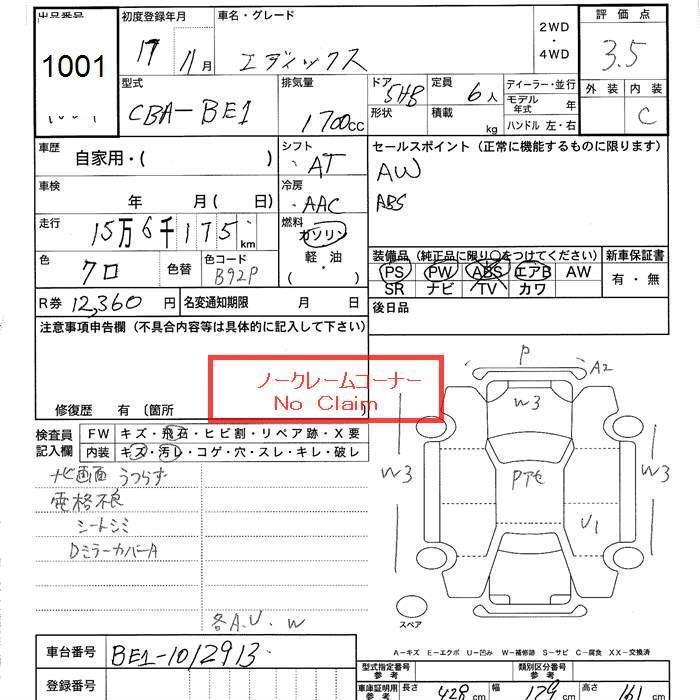 出品番号 1001
初度登録年月 17年 11月
車名・グレード エディックス
2WD ・ 4WD
評価点 3.5
外装 内装 C
型式 CBA-BE1
排気量 1700cc
ドア 形状 5HB
定員 6人
積載 kg
ディーラー・並行
モデル年式 年
ハンドル 左・右
車歴 自家用・( )
シフト AT
セールスポイント(正常に機能するものに限ります)
AW
ABS
車検 年 月( 日)
冷房 AAC
走行 15万6千175km
燃料 ガソリン 軽・油 ( )
色 クロ 色替 色コード B92P
装備品(純正品に限り○をつけてください) 新車保証書
PS PW ABS エアB AW 有・無
SR ナビ TV カワ
後日品
R券 12,360円 名変通知期限 月 日
注意事項申告欄(不具合内容等は具体的に記入して下さい)
ノークレームコーナー
No Claim
修復歴 有(箇所 )
検査員記入欄
FW キズ・飛石・ヒビ割・リペア跡・X要
内装 キズ・汚レ・コゲ・穴・スレ・キレ・破レ
ナビ画面うつらず
電格不良
シートシミ
DミラーカバーA
各A.U.W
P A2
W3
W3 Pアセ W3
U1
スペア
A-キズ E-エクボ U-凹み W-補修跡 S-サビ C-腐食 XX-交換済
車台番号 BE1-1012913
登録番号
型式指定番号 参考 類別区分番号 参考
車庫証明用 参考 長さ 428cm 幅 179cm 高さ 161cm